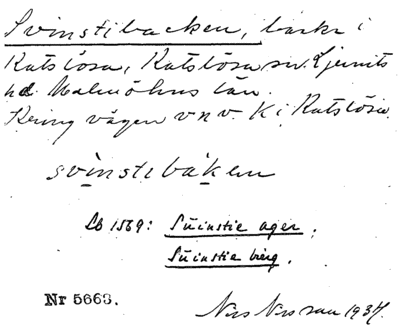 Svinstibacken, backe i
Katslösa, Katslösa sn. Ljunits
hd. Malmöhus län.
Kring vägen v n v. K i Katslösa.
svinstebaken
Lb 1569: Suinstie ager.
Suinstie bierg.
Nr 5663.
Nils Nilsson 1937.